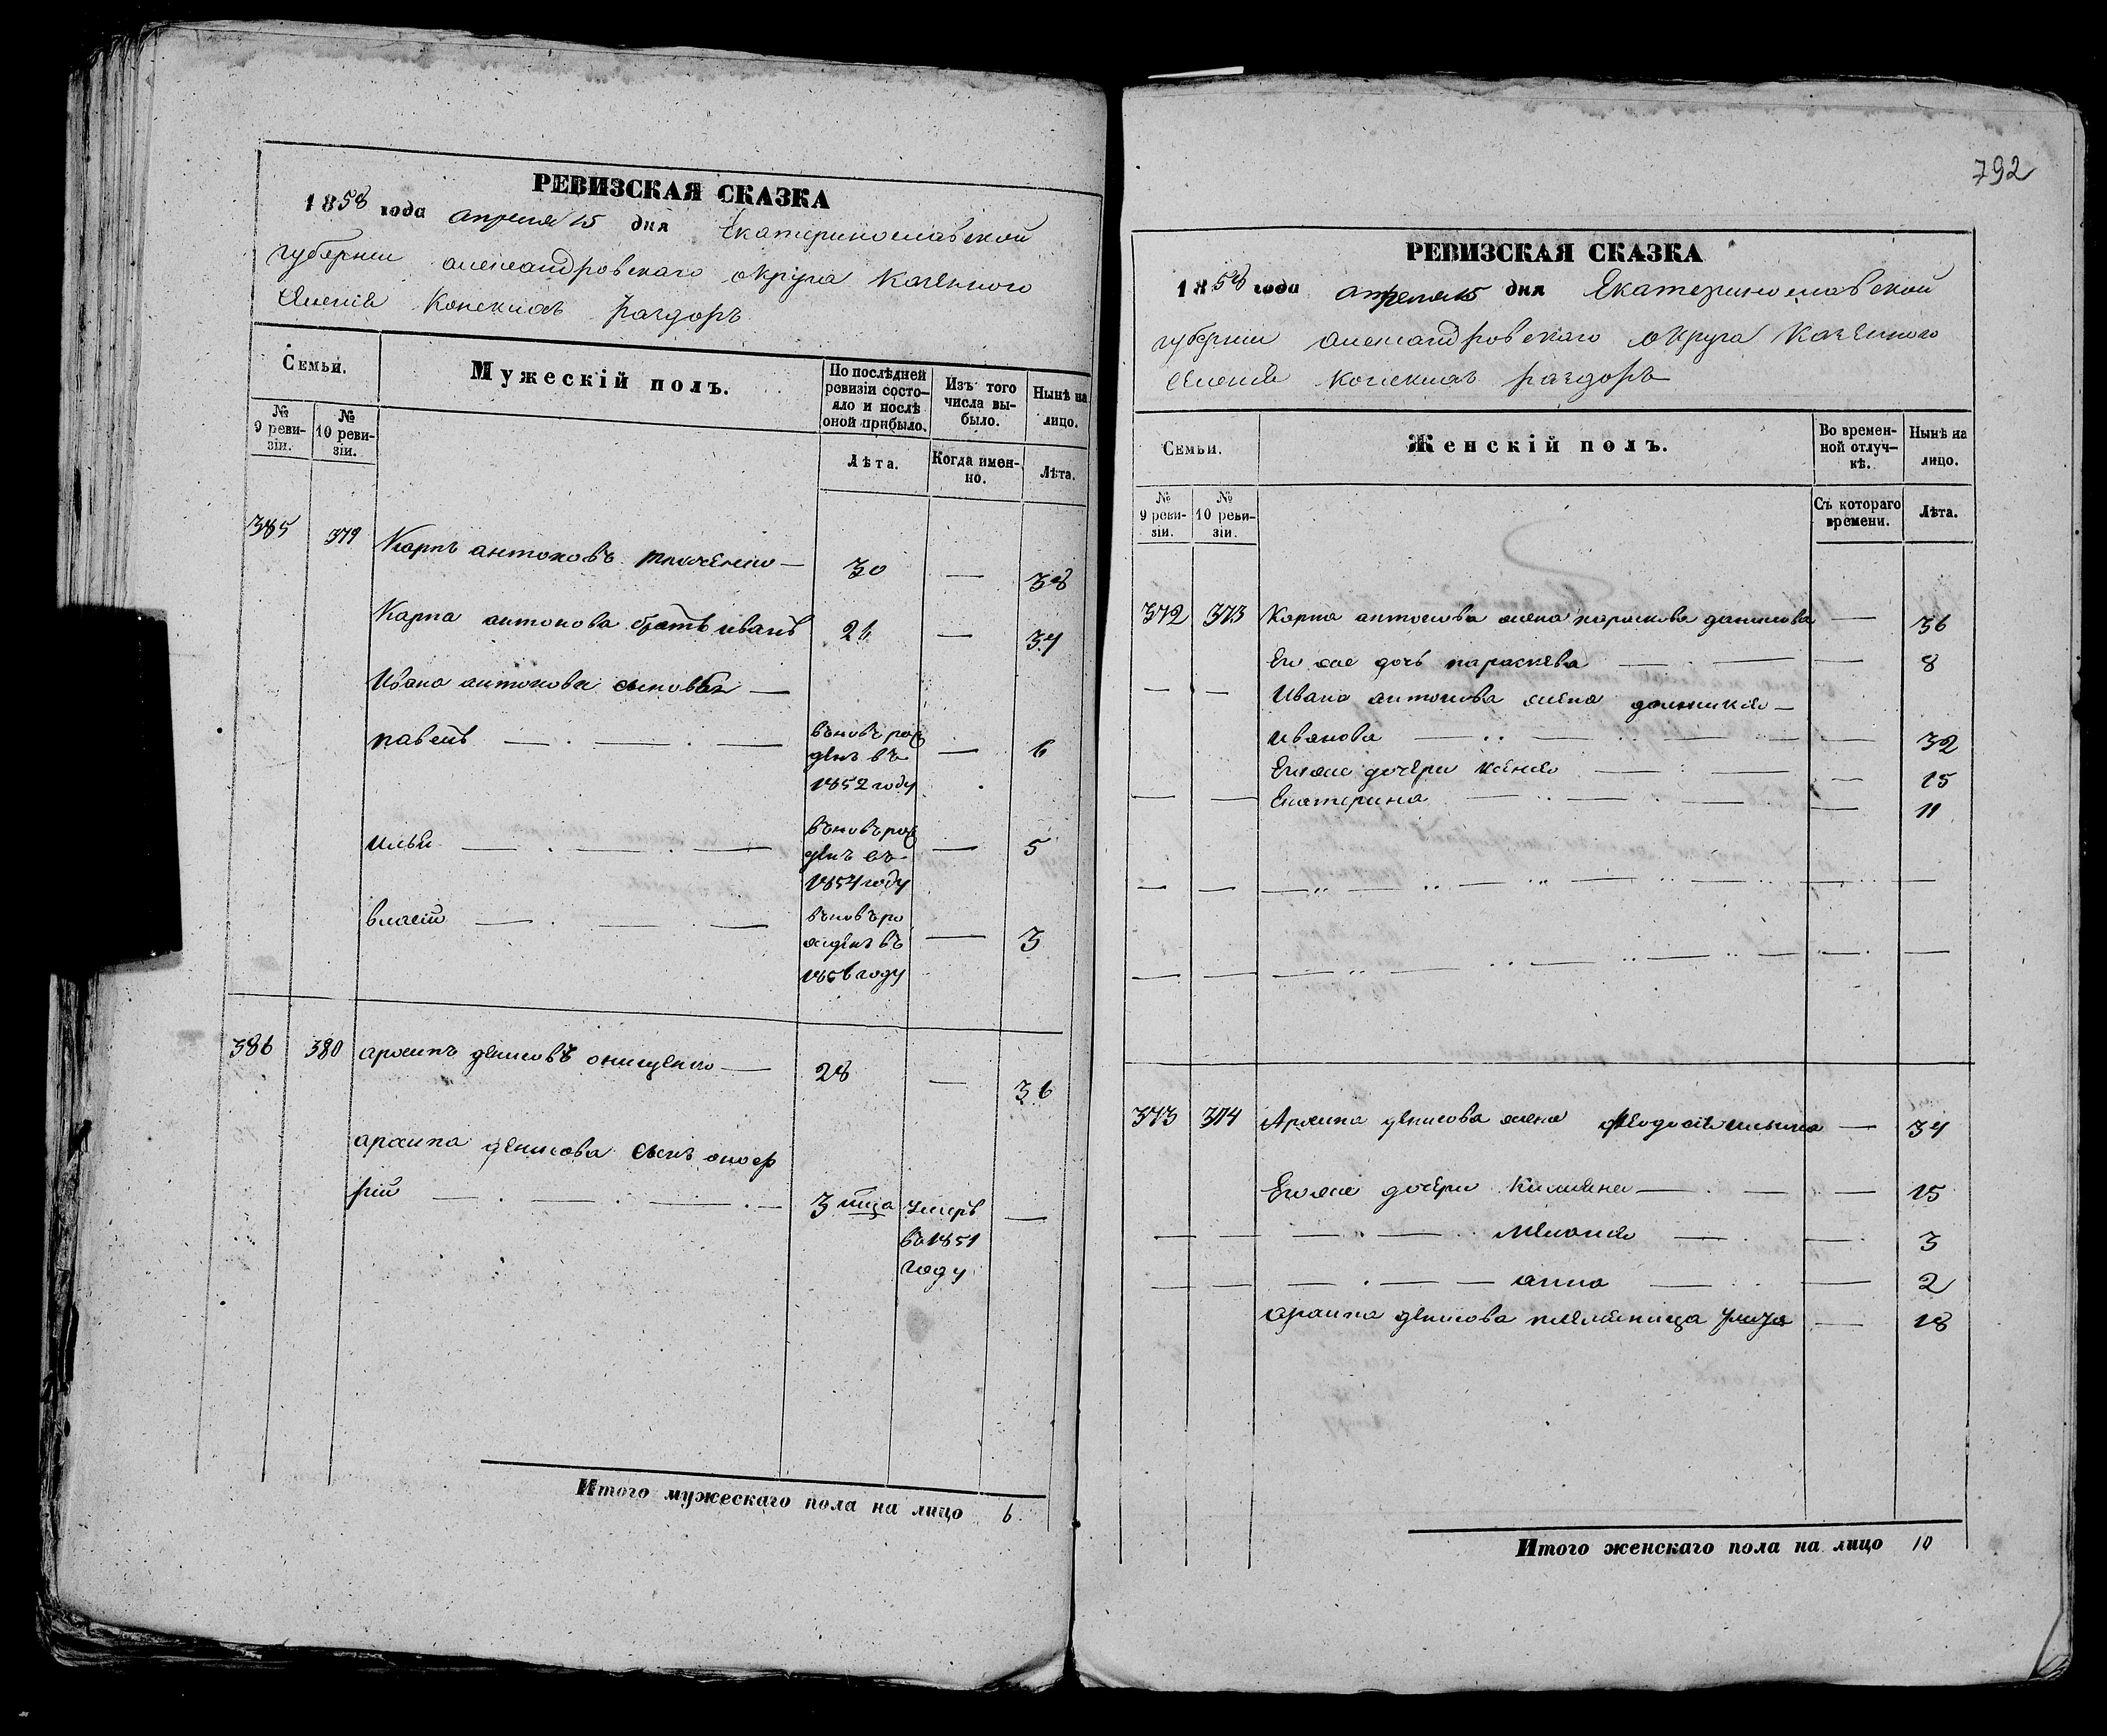 РЕВИЗСКАЯ СКАЗКА
1858 года апреля 15 дня Екатеринославской
губернии александровскаго округа Казенного
селенія Конскихъ раздоръ
Семьи.
Мужескій полъ.
По послѣдней ревизіи состояло и послѣ оной прибыло.
Изъ того числа выбыло.
Нынѣ на лицо.
№ 9 ревизіи.
№ 10 ревизіи.
Лѣта.
Когда именно.
Лѣта.
385 379 Карпъ антоновъ — 30 — 38
Карпа антонова братъ иванъ 26 — 34
Ивана антонова сыновья —
павелъ — . — . — вновь рож
денъ въ — 6
1852 году
илья — . — . — вновь рож
денъ въ — 5
1854 году
власій — . — . — вновь ро
жденъ въ — 3
1856 году
386 380 архипъ денисовъ онищенко — 28 — 36
архипа денисова сынъ оноф
рій — . — . — . — 3 умеръ —
въ 1851
году
Итого мужескаго пола на лицо 6
792
РЕВИЗСКАЯ СКАЗКА
1858 года апреля 15 дня Екатеринославской
губернии александровскаго округа Казенного
селенія конскихъ раздоръ
Семьи.
Женскій полъ.
Во временной отлучкѣ.
Нынѣ на лицо.
№ 9 ревизіи.
№ 10 ревизіи.
Съ котораго времени.
Лѣта.
372 373 Карпа антонова жена параскева данилова — 36
Его же дочь параскева — . — — 8
— — Ивана антонова жена —
иванова — .. — — 32
Его же дочери ксенія — : — — 15
— — Екатерина — .. — . — — 11
373 374 Архипа денисова жена — 34
Его же дочери Килияна — . — — 15
— — — " — меланія — . — 3
— — — . — — анна — . — 2
архипа денисова племяница — 18
Итого женскаго пола на лицо 10